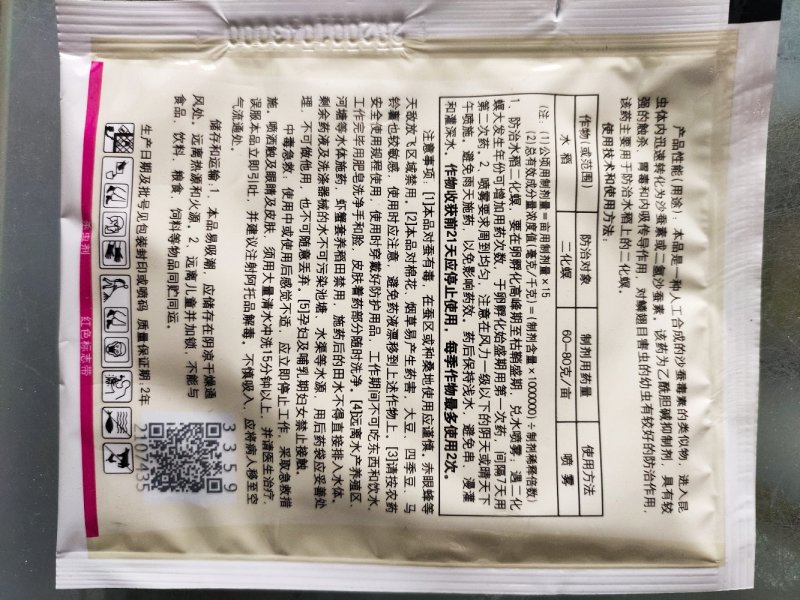 产品性能(用途):本品是一种人工合成的沙蚕毒素的类似物,进入昆
虫体内迅速转化为沙蚕毒素或二氢沙蚕毒素。该药为乙酰胆碱抑制剂,具有较
强的触杀、胃毒和内吸传导作用,对鳞翅目害虫的幼虫有较好的防治作用,
该药主要用于防治水稻上的二化螟。
使用技术和使用方法:
作物(或范围) 防治对象 制剂用药量 使用方法
水稻 二化螟 60-80克/亩 喷雾
(注:(1)公顷用制剂量=亩用制剂量×15
(2)总有效成分量浓度值(毫克/千克)=(制剂含量×1000000)÷制剂稀释倍数)
1、防治水稻二化螟,要在卵孵化高峰期至枯鞘盛期,兑水喷雾;遇二化
螟大发生年份可增加用药次数,于卵孵化始盛期用第一次药,间隔7天用
第二次药。2、喷雾要求周到均匀,注意在风力一级以下的阴天或晴天下
午喷施,避免雨天施药,以免影响药效。药后保持浅水,避免串、漫灌
和灌深水。作物收获前21天应停止使用,每季作物最多使用2次。
注意事项:[1]本品对蚕有毒,在蚕区或种桑地使用应谨慎,赤眼蜂等
天敌放飞区域禁用。[2]本品对棉花、烟草易产生药害,大豆、四季豆、马
铃薯也较敏感,使用时应注意,避免药液漂移到上述作物上。[3]请按农药
安全使用规程使用,使用时穿戴好防护用品,工作期间不可吃东西和饮水,
工作完毕用肥皂洗净手和脸,皮肤着药部分随时洗净。[4]远离水产养殖区、
河塘等水体施药,虾蟹套养稻田禁用,施药后的田水不得直接排入水体。
剩余药液及洗涤器械的水不可污染池塘、水渠等水源,用后药袋应妥善处
理,不可做他用,也不可随意丢弃。[5]孕妇及哺乳期妇女禁止接触。
中毒急救:使用中或使用后感觉不适,应立即停止工作,采取急救措
施。喷洒触及眼睛及皮肤,须用大量清水冲洗15分钟以上,并请医生治疗,
误服本品立即引吐,并建议注射阿托品解毒。不慎吸入,应将病人移至空
气流通处。
储存和运输:1、本品易吸潮,应储存在阴凉干燥通
风处,远离热源和火源。2、远离儿童并加锁,不能与
食品、饮料、粮食、饲料等物品同贮同运。
生产日期及批号见包装封印或喷码 质量保证期:2年
3359
2107435
杀虫剂 红色标志带